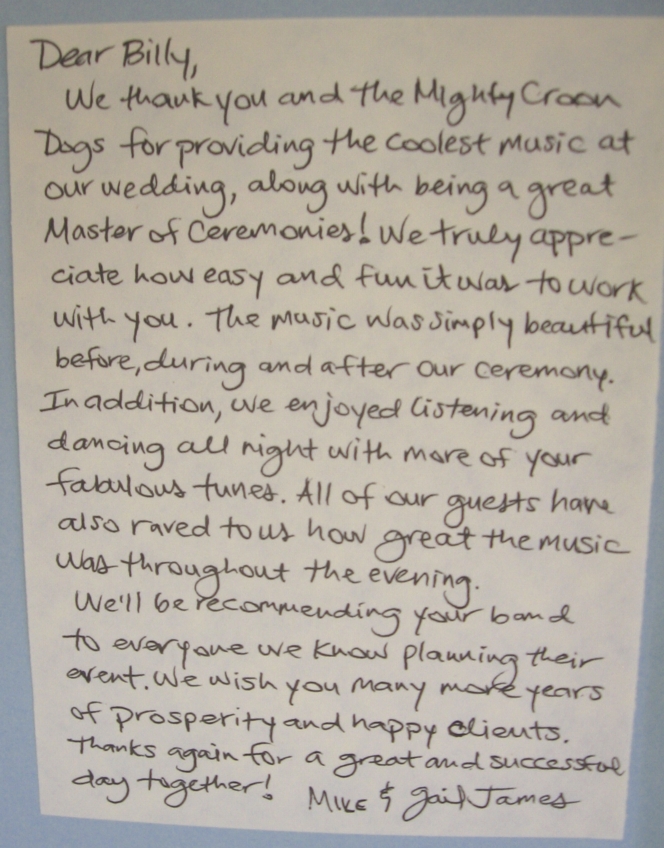 Dear Billy,
We thank you and the Mighty Croon
Dogs for providing the coolest music at
our wedding, along with being a great
Master of Ceremonies! We truly appre-
ciate how easy and fun it was to work
with you. The music was simply beautiful
before, during and after our ceremony.
In addition, we enjoyed listening and
dancing all night with more of your
fabulous tunes. All of our guests have
also raved to us how great the music
was throughout the evening.
We'll be recommending your band
to everyone we know planning their
event. We wish you many more years
of prosperity and happy clients.
Thanks again for a great and successful
day together! Mike & Gail James